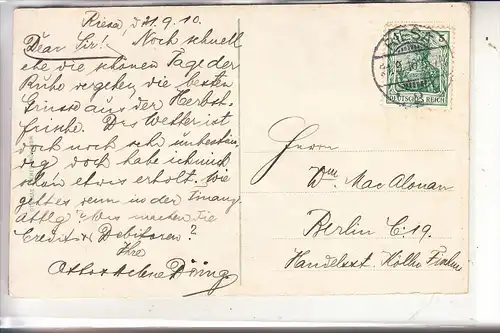 Riesa, d 21.9.10.
Dear Sir! Noch schnell
ehe die schönen Tage der
Ruhe vergehen die besten
Grüsse aus der Herbst-
frische. Das Wetter ist
doch noch sehr unbestän-
dig doch habe ich mich
schon etwas erholt. Wie
geht es denn in der Finanz
Abtlg? Was machen die
Credit & Debitoren?
Ihre
Otto Döring
RIESA
5
DEUTSCHES REICH
Herrn
Wm. Mac
Berlin C. 19
Handelsst.